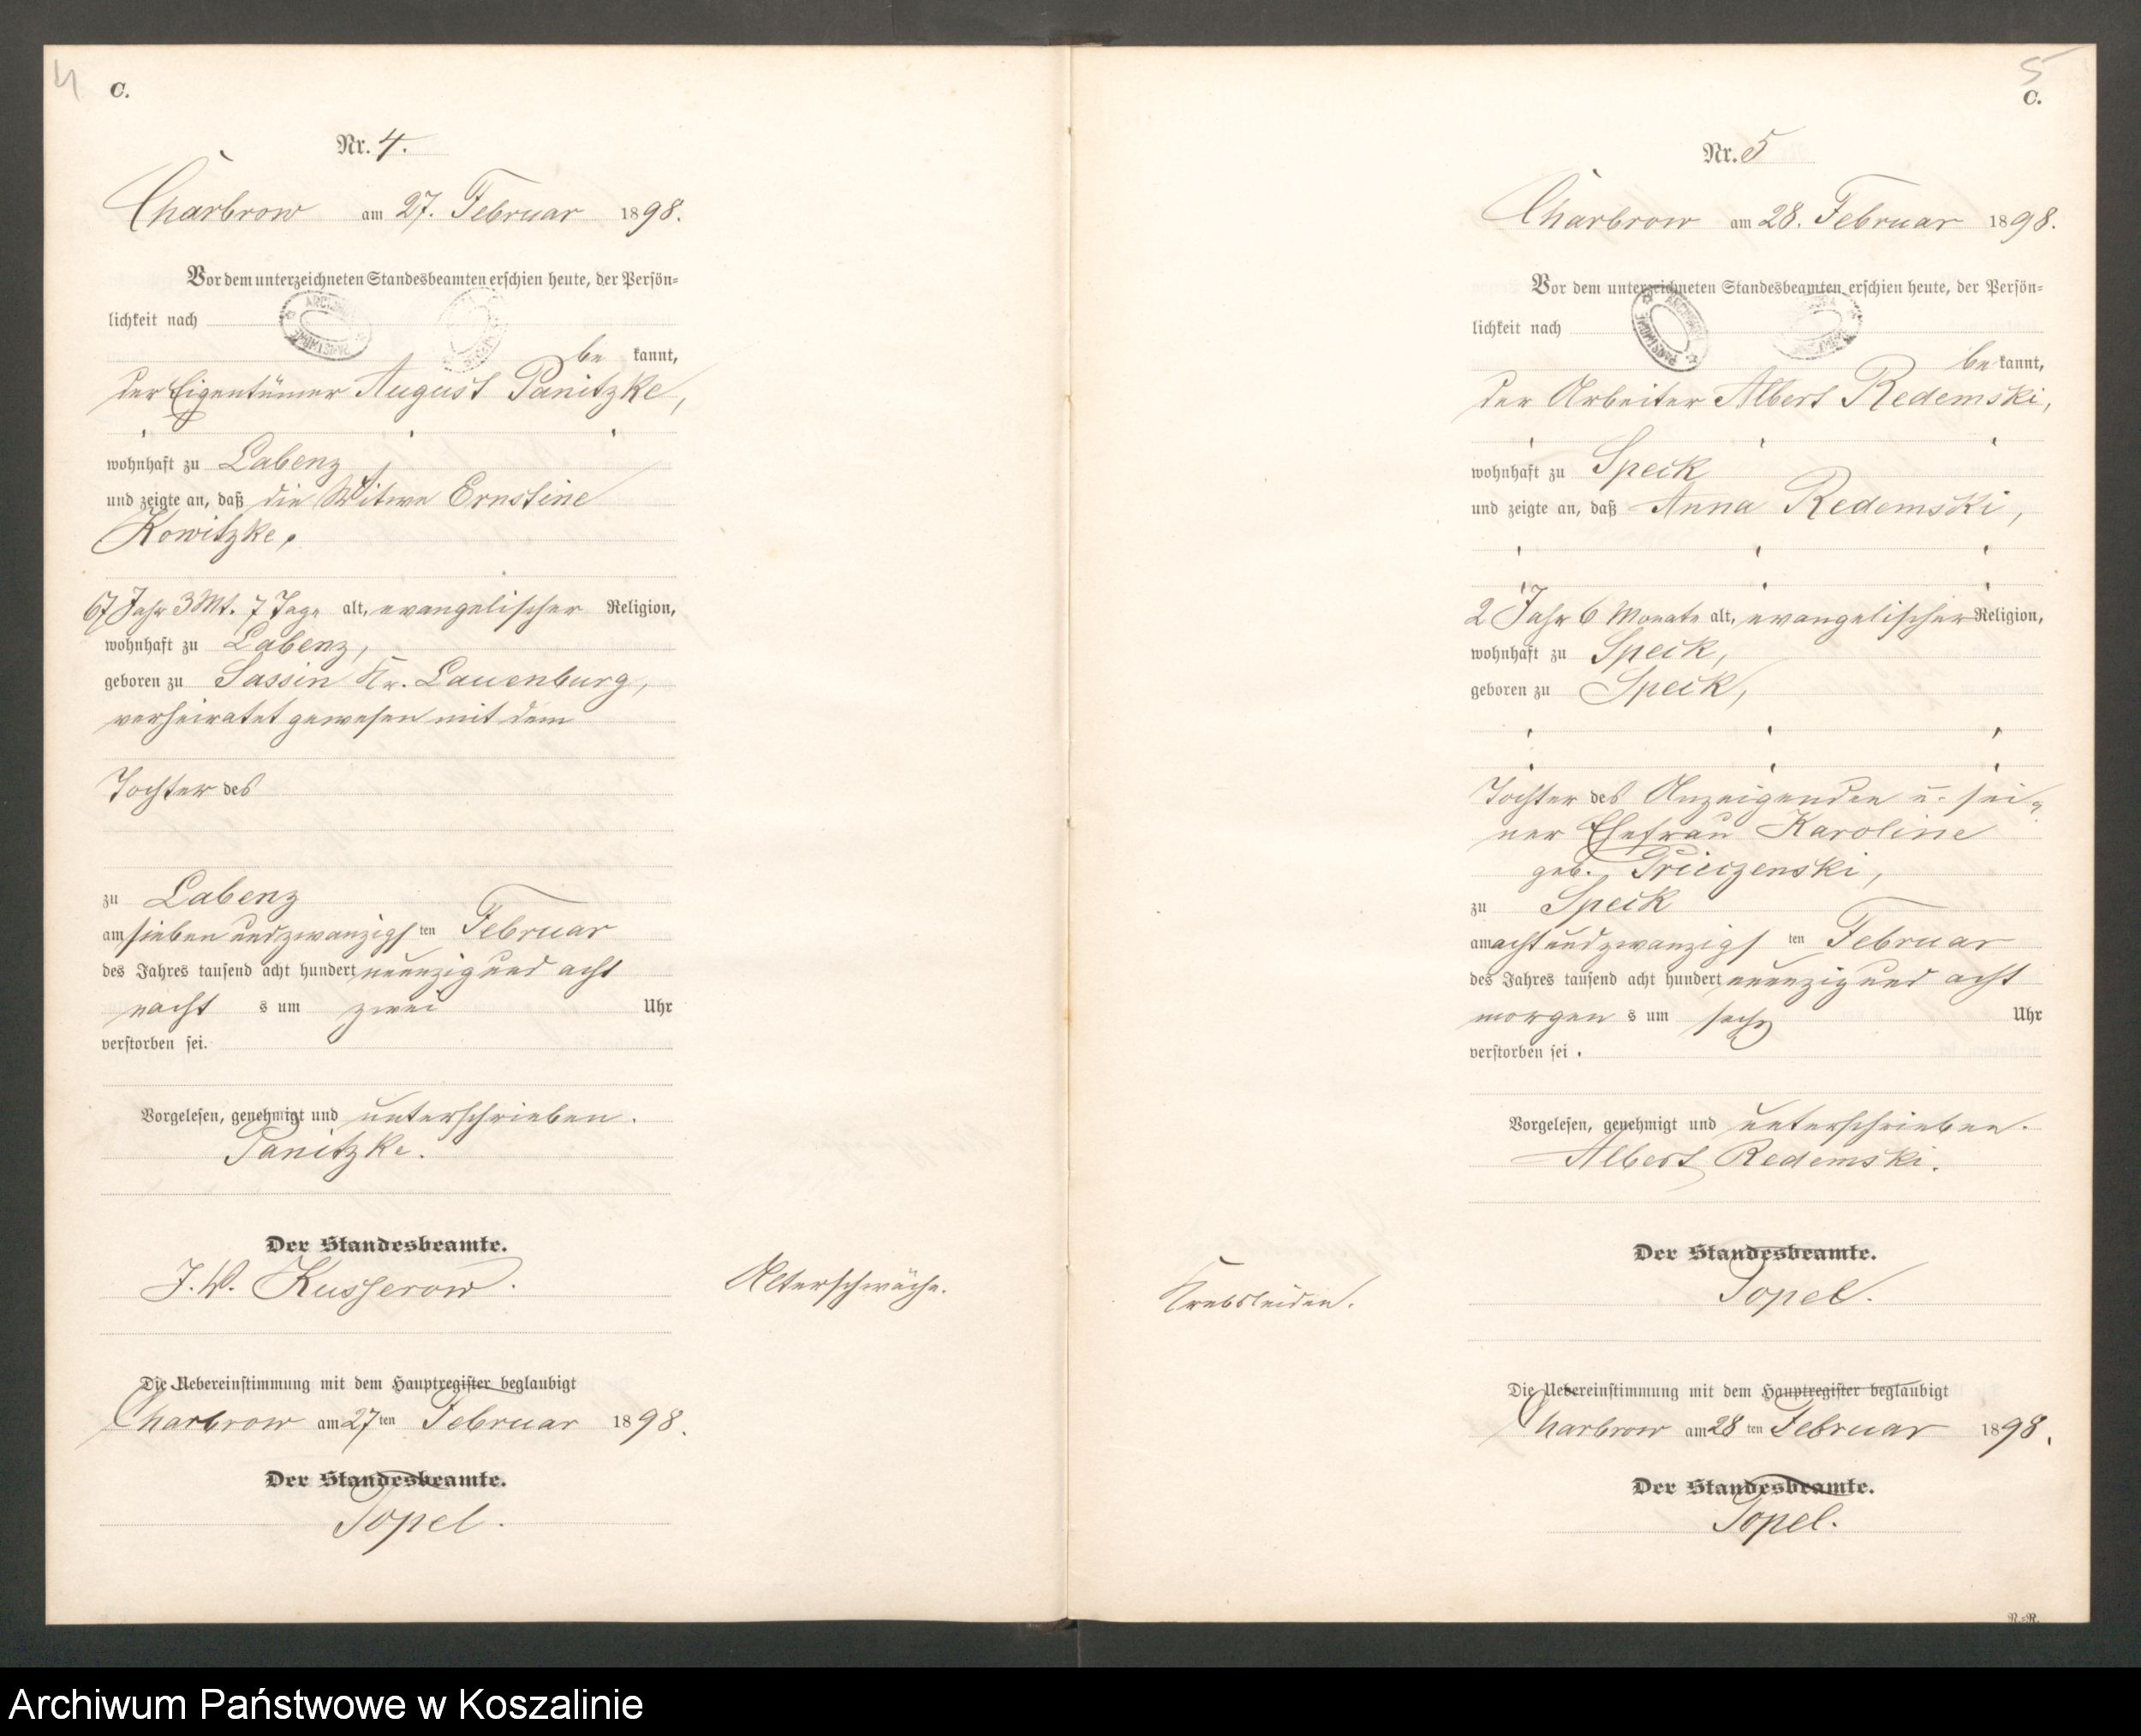 4
C.
Nr. 4.
Charbrow am 27. Februar 1898.
Vor dem unterzeichneten Standesbeamten erschien heute, der Persön-
lichkeit nach
be kannt,
der Eigentümer August Panitzke,
wohnhaft zu Labenz,
und zeigte an, daß die Witwe Ernstine
Kowitzke,
67 Jahr 3 Mt. 7 Tage alt, evangelischer Religion,
wohnhaft zu Labenz,
geboren zu Sassin Kr. Lauenburg,
verheiratet gewesen mit dem
Tochter des
zu Labenz
am sieben und zwanzigsten Februar
des Jahres tausend acht hundert neunzig und acht
nacht s um zwei Uhr
verstorben sei.
Vorgelesen, genehmigt und unterschrieben.
Panitzke.
Der Standesbeamte.
J. V. Kusserow.
Alterschwäche.
Die Uebereinstimmung mit dem Hauptregister beglaubigt
Charbrow am 27ten Februar 1898.
Der Standesbeamte.
Topel.
5
C.
Nr. 5
Charbrow am 28. Februar 1898.
Vor dem unterzeichneten Standesbeamten erschien heute, der Persön-
lichkeit nach
be kannt,
der Arbeiter Albert Redemski,
wohnhaft zu Speck
und zeigte an, daß Anna Redemski,
2 Jahr 6 Monate alt, evangelischer Religion,
wohnhaft zu Speck,
geboren zu Speck,
Tochter des Anzeigenden u. sei-
ner Ehefrau Karoline
geb.
zu Speck
am acht und zwanzigsten Februar
des Jahres tausend acht hundert neunzig und acht
morgen s um sechs Uhr
verstorben sei.
Vorgelesen, genehmigt und unterschrieben.
Albert Redemski.
Der Standesbeamte.
Topel.
Krebsleiden.
Die Uebereinstimmung mit dem Hauptregister beglaubigt
Charbrow am 28 ten Februar 1898.
Der Standesbeamte.
Topel.
R.-R.
Archiwum Państwowe w Koszalinie